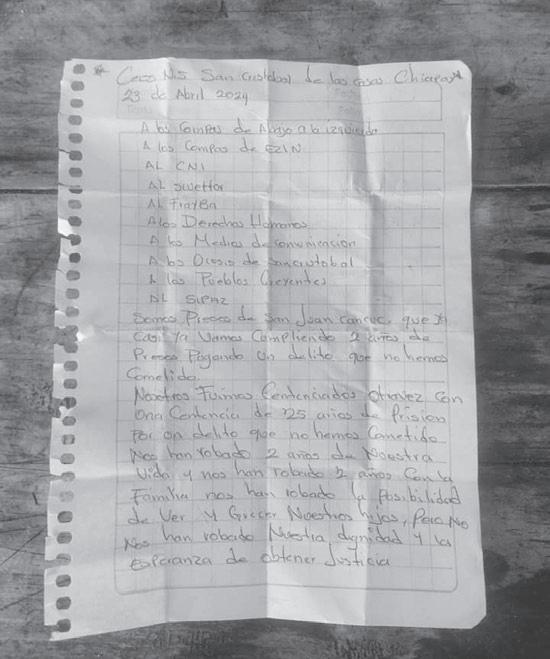 * Ceros N:5 San Cristobal de las casas Chiapas*
23 de Abril 2024
A los Compas de Abajo a la izquierda
A los Compas de EZlN
AL CNI
AL swefor
AL FrayBa
A los Derechos Humanos
A los Medios de comunicacion
A los Ocesis de sancristobal
A los Pueblos Creyentes
AL SIPAZ
Somos Presos de San Juan cancuc, que ya
Casi ya Vamos Compliendo 2 años de
Presos Pagando Un delito que no hemos
Cometido.
Nosotros Fuimos Centenciados Otravez Con
Una Centencia de 25 años de Prision
Por un delito que no hemos Cometido
Nos han robado 2 años de Nuestra
Vida y nos han robado 2 años Con la
Familia nos han robado la Posibilidad
de Ver y Crecer Nuestros hijos, Pero No
Nos han robado Nuestra dignidad y la
esperanza de obtener Justicia